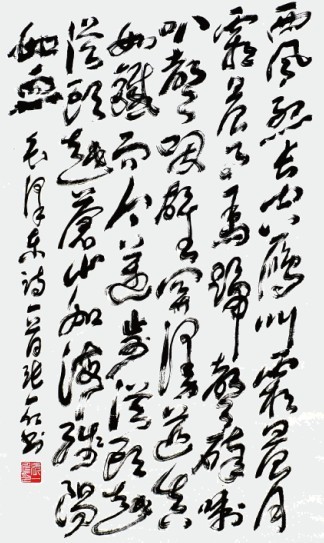 西风烈长空雁叫霜晨月
霜晨月马蹄声碎喇
叭声咽雄关漫道真
如铁而今迈步从头越
从头越苍山如海残阳
如血 毛泽东诗一首 书